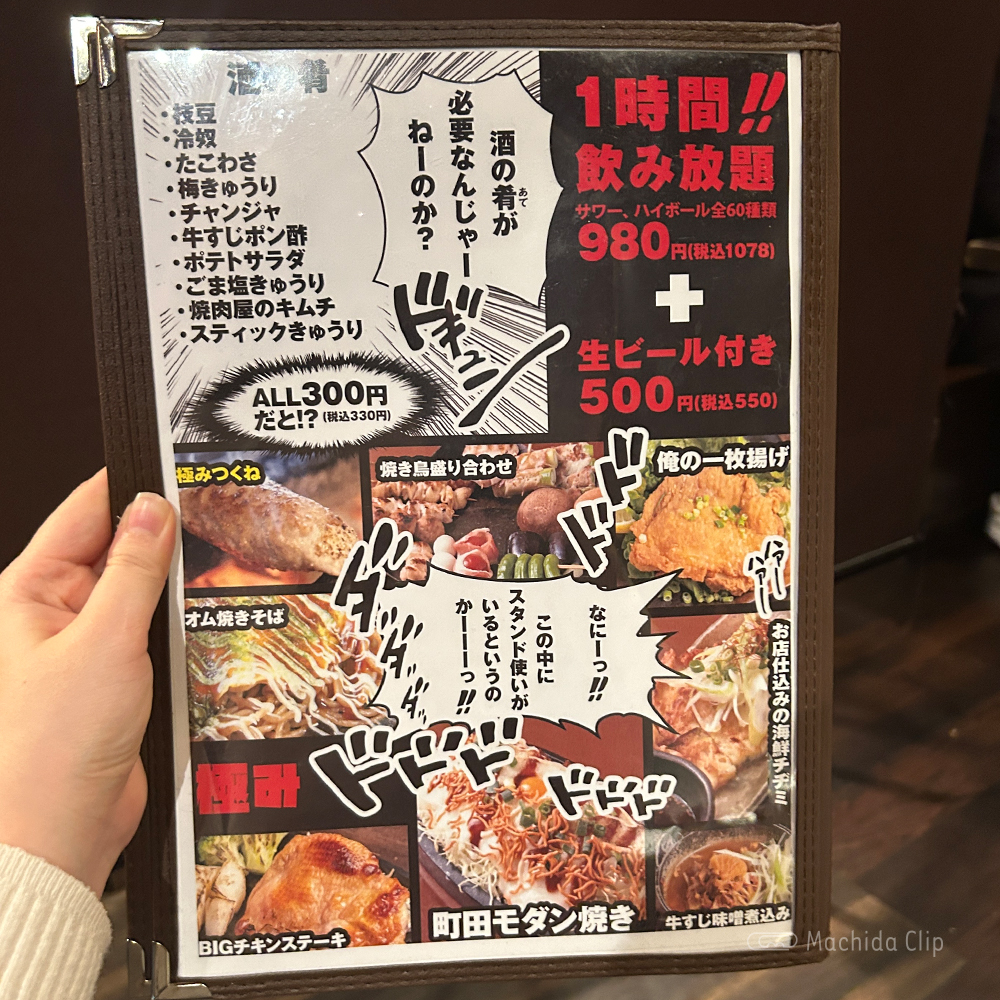 酒の肴
・枝豆
・冷奴
・たこわさ
・梅きゅうり
・チャンジャ
・牛すじポン酢
・ポテトサラダ
・ごま塩きゅうり
・焼肉屋のキムチ
・スティックきゅうり
ALL300円
だと!?(税込330円)
酒の肴が
あて
必要なんじゃー
ねーのか?
ドギュン
1時間!!
飲み放題
サワー、ハイボール全60種類
980円(税込1078)
+
生ビール付き
500円(税込550)
極みつくね
焼き鳥盛り合わせ
ドドド
俺の一枚揚げ
オム焼きそば
ダダダ
なにーっ!!
この中に
スタンド使いが
いるというの
かーーーっ!!
お店仕込みの海鮮チヂミ
極み
ドドドド
ドドドド
BIGチキンステーキ
町田モダン焼き
牛すじ味噌煮込み
Machida Clip